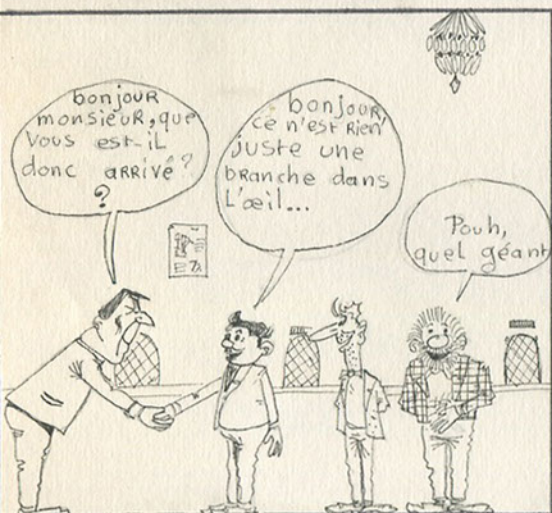 bonjour
monsieur, que
vous est-il
donc arrivé?
?
bonjour,
ce n'est rien,
juste une
branche dans
l'œil...
Pouh,
quel géant